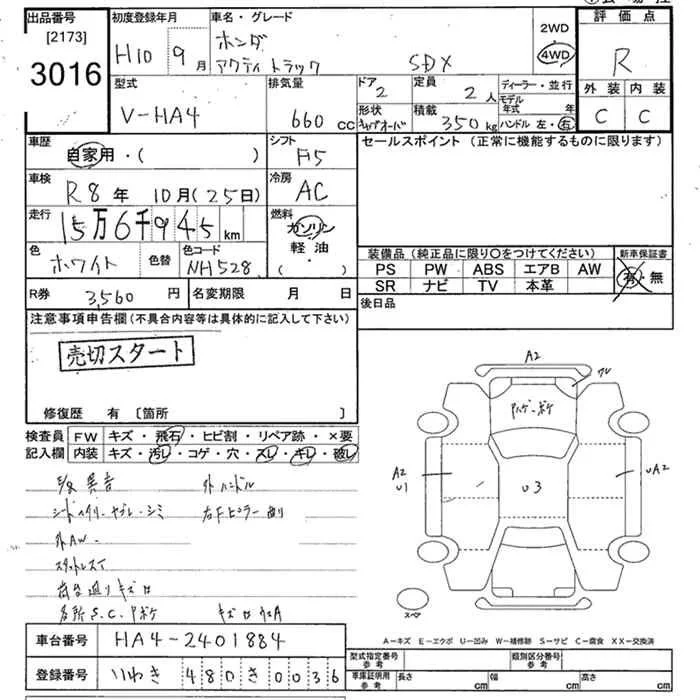 出品番号
[2173]
3016
初度登録年月
H10 9月
車名・グレード
ホンダ
アクティトラック SDX
2WD
4WD
評価点
R
外装 内装
C C
型式
V-HA4
排気量
660 CC
ドア
2
定員
2人
形状
積載
350 kg
ディーラー・並行
モデル年式 年
ハンドル 左・右
車歴
自家用・( )
シフト
F5
セールスポイント (正常に機能するものに限ります)
車検
R8年 10月(25日)
冷房
AC
走行
15万6千945 km
燃料
ガソリン
軽油
( )
色
ホワイト
色替
色コード
NH528
装備品(純正品に限り○をつけてください)
PS PW ABS エアB AW
SR ナビ TV 本革
新車保証書
有・無
R券 3,560円
名変期限 月 日
後日品
注意事項申告欄(不具合内容等は具体的に記入して下さい)
売切スタート
修復歴 有 〔箇所 〕
検査員記入欄
FW キズ・飛石・ヒビ割・リペア跡・×要
内装 キズ・汚レ・コゲ・穴・スレ・キレ・破レ
異音 外ハンドル
外AW
キズ
各所 S.C.
A2
A2
U1
U3
UA2
スペア
A−キズ E−エクボ U−凹み W−補修跡 S−サビ C−腐食 XX−交換済
車台番号 HA4-2401884
登録番号 いわき 480 き 0036
型式指定番号参考
類別区分番号参考
車庫証明用参考 長さ cm 幅 cm 高さ cm